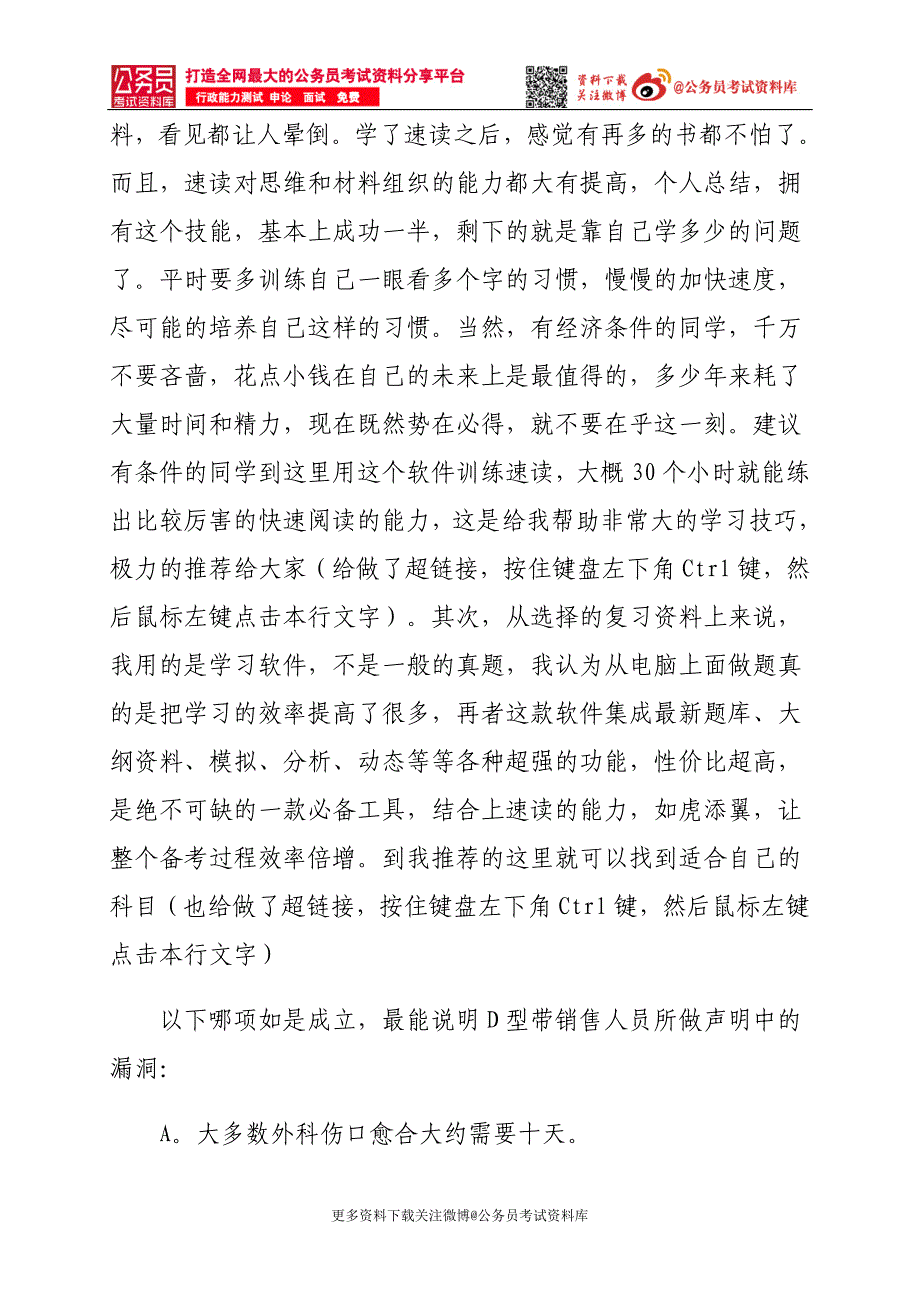 公务员
考试资料库
打造全网最大的公务员考试资料分享平台
行政能力测试 申论 面试 免费
资料下载
关注微博
@公务员考试资料库
料，看见都让人晕倒。学了速读之后，感觉有再多的书都不怕了。
而且，速读对思维和材料组织的能力都大有提高，个人总结，拥
有这个技能，基本上成功一半，剩下的就是靠自己学多少的问题
了。平时要多训练自己一眼看多个字的习惯，慢慢的加快速度，
尽可能的培养自己这样的习惯。当然，有经济条件的同学，千万
不要吝啬，花点小钱在自己的未来上是最值得的，多少年来耗了
大量时间和精力，现在既然势在必得，就不要在乎这一刻。建议
有条件的同学到这里用这个软件训练速读，大概 30 个小时就能练
出比较厉害的快速阅读的能力，这是给我帮助非常大的学习技巧，
极力的推荐给大家（给做了超链接，按住键盘左下角 Ctrl 键，然
后鼠标左键点击本行文字）。其次，从选择的复习资料上来说，
我用的是学习软件，不是一般的真题，我认为从电脑上面做题真
的是把学习的效率提高了很多，再者这款软件集成最新题库、大
纲资料、模拟、分析、动态等等各种超强的功能，性价比超高，
是绝不可缺的一款必备工具，结合上速读的能力，如虎添翼，让
整个备考过程效率倍增。到我推荐的这里就可以找到适合自己的
科目（也给做了超链接，按住键盘左下角 Ctrl 键，然后鼠标左键
点击本行文字）
以下哪项如是成立，最能说明 D 型带销售人员所做声明中的
漏洞：
A。大多数外科伤口愈合大约需要十天。
更多资料下载关注微博@公务员考试资料库